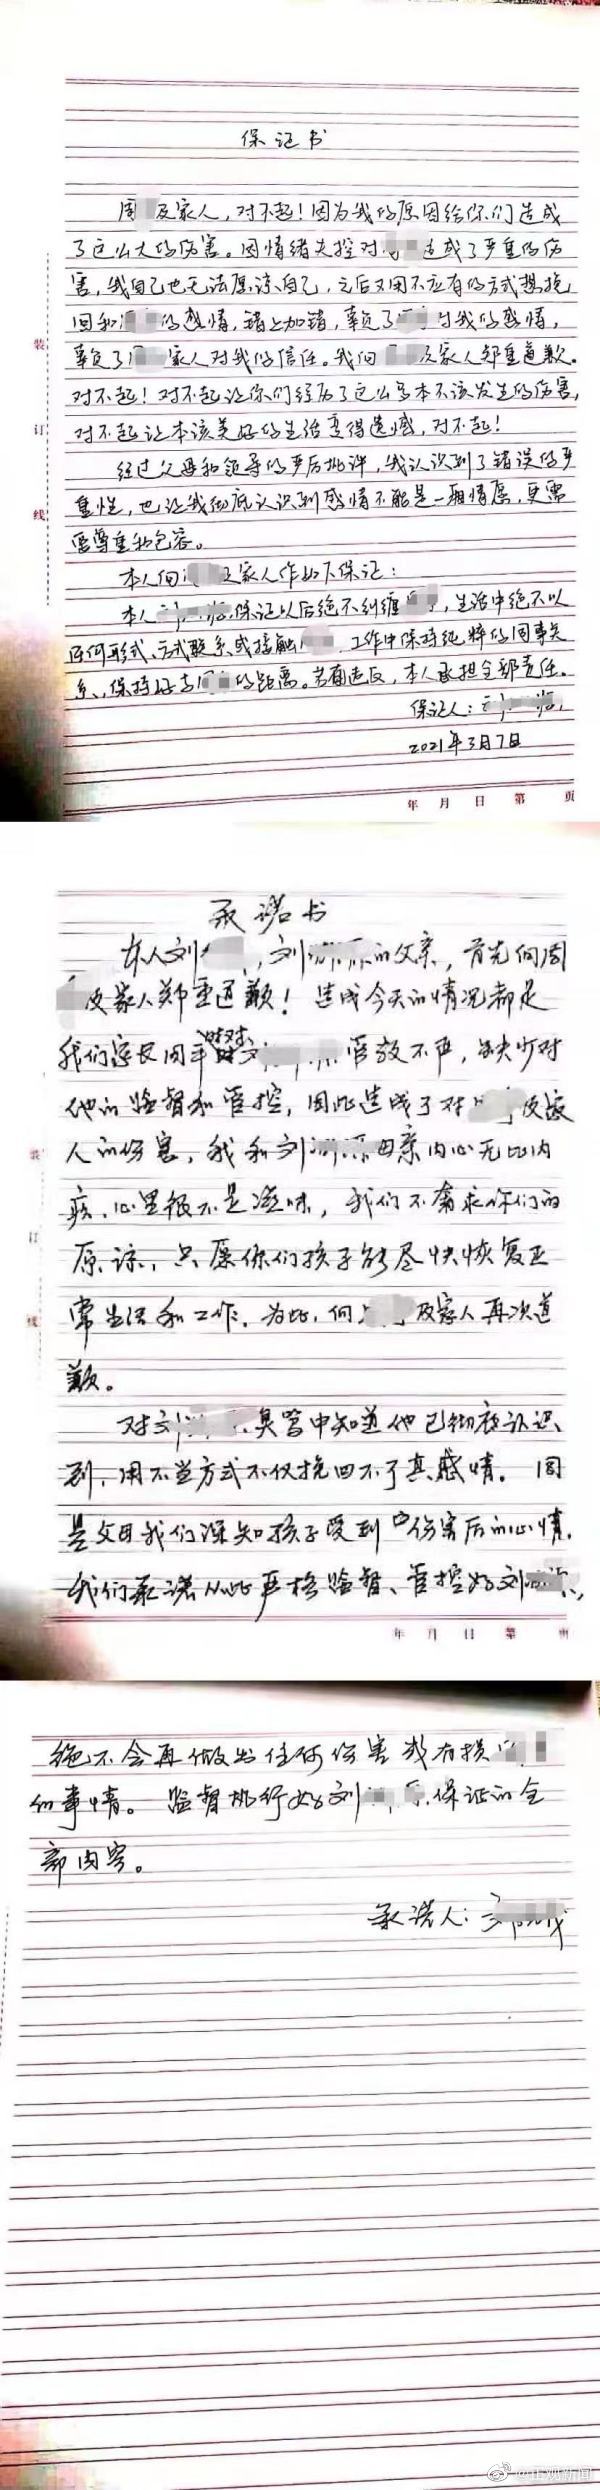 保证书
周 及家人，对不起！因为我的原因给你们造成
了这么大的伤害。因情绪失控对 造成了严重的伤
害，我自己也无法原谅自己，之后又用不应有的方式想挽
回和 的感情，错上加错，辜负了 对我的感情，
辜负了 家人对我的信任。我向 及家人郑重道歉。
对不起！对不起让你们经历了这么多本不该发生的伤害，
对不起让本该美好的生活变得遗憾，对不起！
经过父母和领导的严厉批评，我认识到了错误的严
重性，也让我彻底认识到感情不能是一厢情愿，更需
要尊重和包容。
本人向 及家人作如下保证：
本人 保证以后绝不纠缠 ，生活中绝不以
任何形式、方式联系或接触 ，工作中保持纯粹的同事关
系，保持好与 的距离。若有违反，本人承担全部责任。
保证人：
2021年3月7日
装
订
线
年 月 日 第 页
承诺书
本人刘 ，刘 的父亲，首先向周
及家人郑重道歉！造成今天的情况都是
我们家长同平时对 管教不严，缺少对
他的监督和管控，因此造成了对 及家
人的伤害，我和刘 母亲内心无比内
疚，心里很不是滋味，我们不奢求你们的
原谅，只愿你们孩子能尽快恢复正
常生活和工作。为此，向 及家人再次道
歉。
对刘 中知道他已彻底认识
到，用不当方式不仅挽回不了真感情。同
是父母我们深知孩子受到伤害后的心情，
我们承诺从此严格监督、管控好刘 ，
装
订
线
年 月 日 第 页
绝不会再做出任何伤害或有损
的事情。监督执行好刘 保证的全
部内容。
承诺人：
@正观新闻